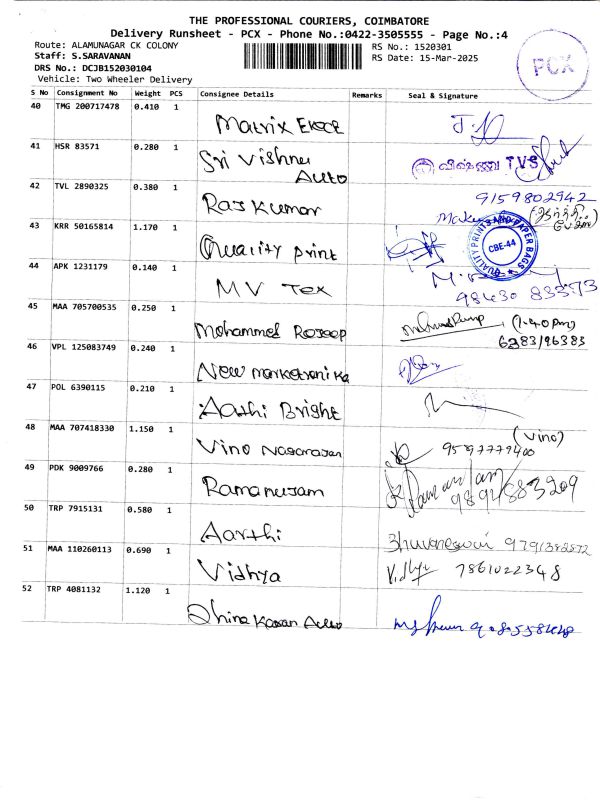 THE PROFESSIONAL COURIERS, COIMBATORE
Delivery Runsheet - PCX - Phone No.:0422-3505555 - Page No.:4
Route: ALAMUNAGAR CK COLONY RS No.: 1520301
Staff: S.SARAVANAN RS Date: 15-Mar-2025
DRS No.: DCJB152030104
Vehicle: Two Wheeler Delivery
PCX
S No Consignment No Weight PCS Consignee Details Remarks Seal & Signature
40 TMG 200717478 0.410 1
Matrix
41 HSR 83571 0.280 1
Sri Vishnu Auto விஷ்ணு TVS
42 TVL 2890325 0.380 1
Raj Kumar 9159802942
43 KRR 50165814 1.170 1
Quality Print QUALITY PRINTS AND PAPER BAGS CBE-44
44 APK 1231179 0.140 1
MV Tex 98430 83573
45 MAA 705700535 0.250 1
Mohammed (1.40 pm)
6283196383
46 VPL 125083749 0.240 1
New
47 POL 6390115 0.210 1
Aathi Bright
48 MAA 707418330 1.150 1
Vino Nagarajan (Vino)
49 PDK 9009766 0.280 1
Ramanujam
50 TRP 7915131 0.580 1
Aarthi Bhuvaneswari
51 MAA 110260113 0.690 1
Vidhya Vidhya 7861022348
52 TRP 4081132 1.120 1
Dhina Karan Auto